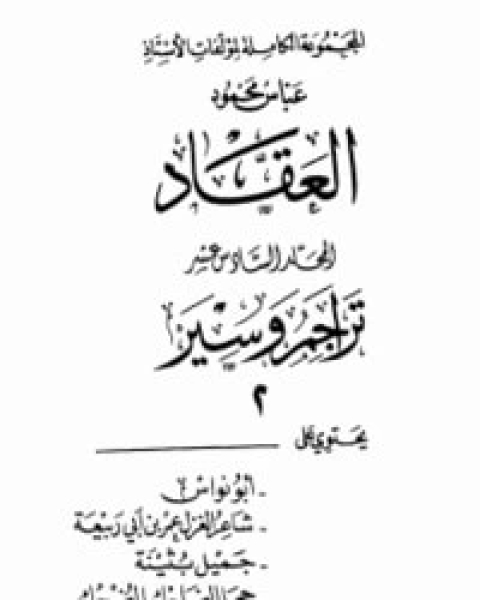 المجموعة الكاملة لمؤلفات الأستاذ
عباس محمود
العقاد
المجلد السادس عشر
تراجم وسير
٢
يحتوي على
- أبو نواس
- شاعر الغزل عمر بن أبي ربيعة
- جميل بثينة
جحا الضاحك المضحك